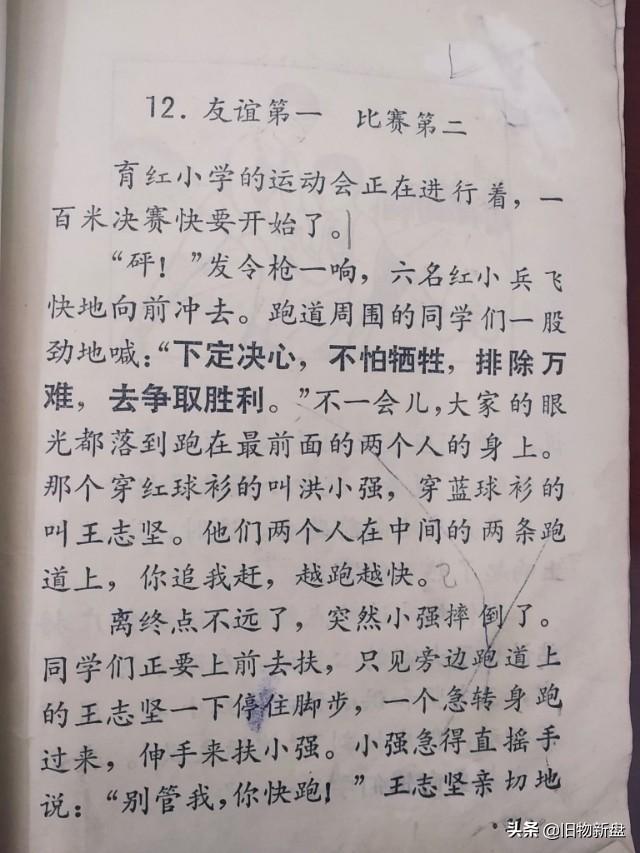 12. 友谊第一 比赛第二
育红小学的运动会正在进行着，一
百米决赛快要开始了。
“砰！”发令枪一响，六名红小兵飞
快地向前冲去。跑道周围的同学们一股
劲地喊：“下定决心，不怕牺牲，排除万
难，去争取胜利。”不一会儿，大家的眼
光都落到跑在最前面的两个人的身上。
那个穿红球衫的叫洪小强，穿蓝球衫的
叫王志坚。他们两个人在中间的两条跑
道上，你追我赶，越跑越快。
离终点不远了，突然小强摔倒了。
同学们正要上前去扶，只见旁边跑道上
的王志坚一下停住脚步，一个急转身跑
过来，伸手来扶小强。小强急得直摇手
说：“别管我，你快跑！”王志坚亲切地
头条 @旧物新盘